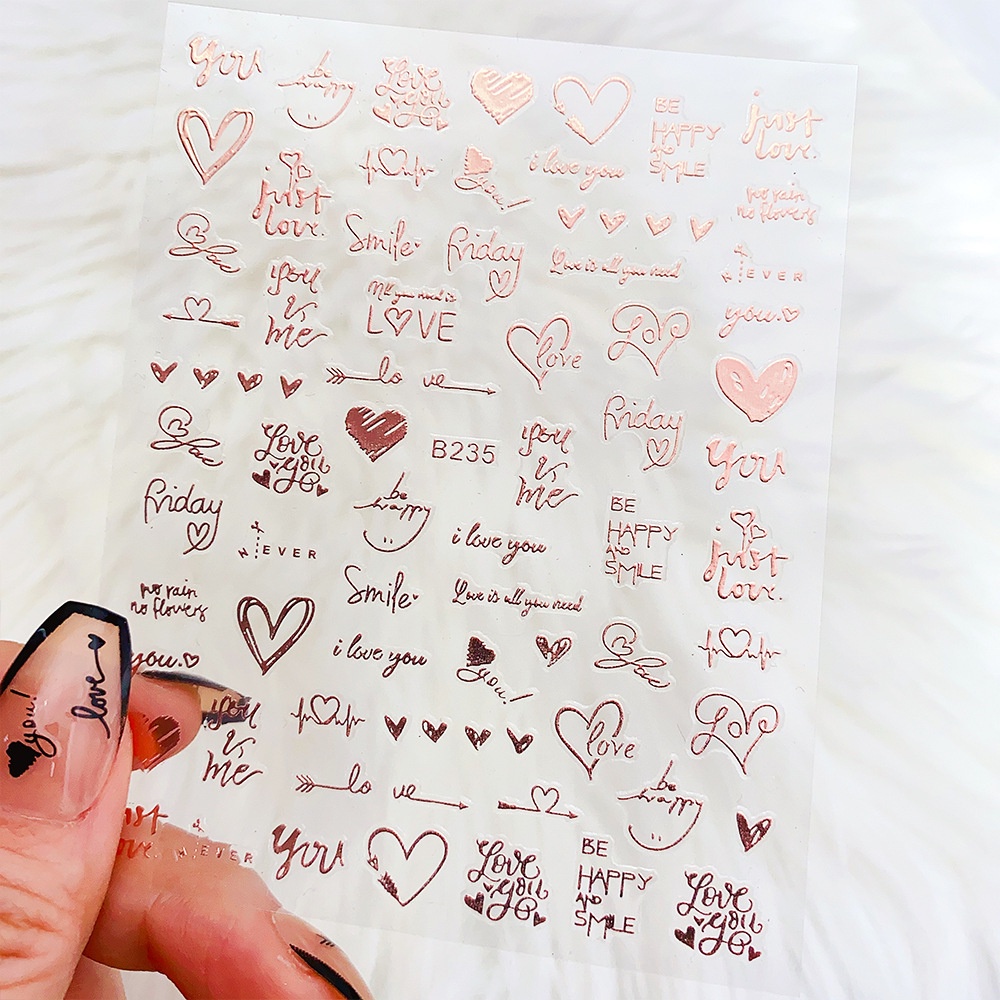 you
be
happy
Love
you
BE
HAPPY
AND
SMILE
just
love.
just
love.
you!
i love you
no rain
no flowers
Smile
friday
Love is all you need
EVER
you
is
me
All you need is
LOVE
you.
love
Love
lo ve
friday
Love
you
B235
you
is
me
you
friday
be
happy
BE
HAPPY
AND
SMILE
just
love.
EVER
i love you
no rain
no flowers
Smile
Love is all you need
you.
i love you
you!
you!
love
you
is
me
love
Love
lo ve
be
happy
just
love.
EVER
you
Love
you
BE
HAPPY
AND
SMILE
Love
you